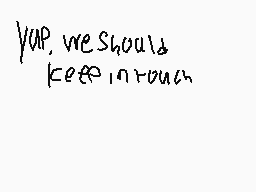 yup, we should
keep in touch